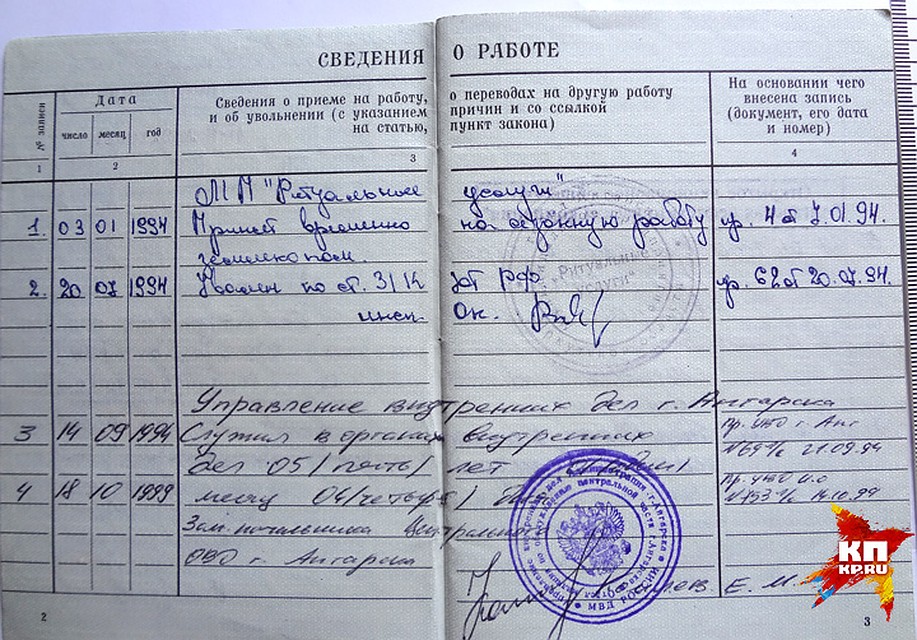 СВЕДЕНИЯ О РАБОТЕ
№ записи
Дата
число месяц год
Сведения о приеме на работу, о переводах на другую работу
и об увольнении (с указанием причин и со ссылкой
на статью, пункт закона)
На основании чего
внесена запись
(документ, его дата
и номер)
1 2 3 4
МП "Ритуальные услуги"
1. 03 01 1994 Принят временно на сдачную работу пр. 4 от 7.01.94.
землекопом.
2. 20 07 1994 Уволен по ст. 31 КЗОТ РФ пр. 62 от 20.07.94.
инсп. ОК.
Ритуальные
услуги
Управление внутренних дел г. Ангарска
3 14 09 1994 Служил в органах внутренних Пр. УВД г. Анг
дел 05 /пять/ лет 21.09.94
4 18 10 1999 месяц 04 /четыре/ Пр. УВД
14.10.99
Зам. начальника Центрального
ОВО г. Ангарска
МВД РОССИИ
Е. М.
КП
KP.RU
2 3